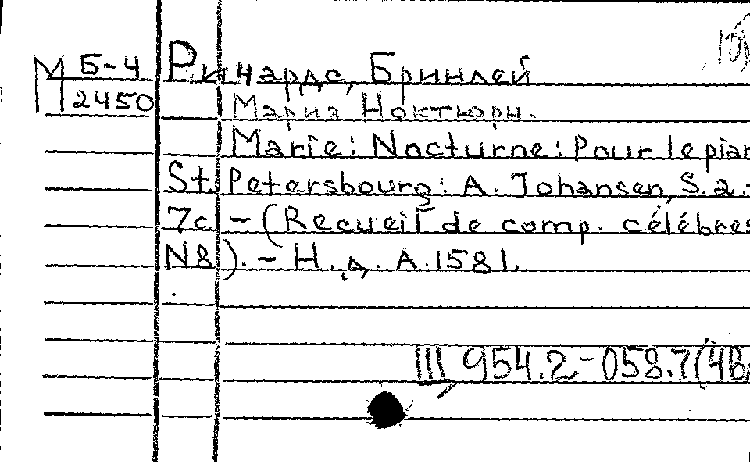 М Б-4
2450
Ричардс, Бринлей
Мария Ноктюрн.
Marie: Nocturne: Pour le pian
St. Petersbourg: A. Johansen, S.a.-
7c - (Recueil de comp. célébres
N8). - Н.д. A.1581.
III 954.2-058.7(4В